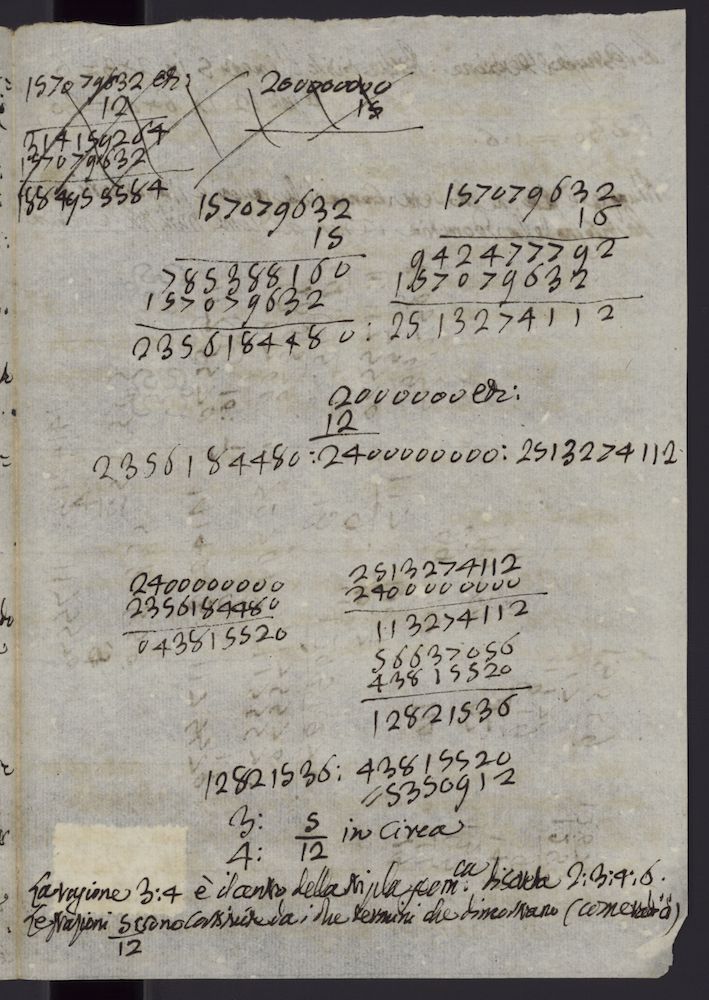 157079632 etc: 200000000
12 15
314159264
157079632
1884955584
157079632 157079632
15 16
785388160 942477792
157079632 157079632
2356184480: 2513274112
2000000 etc:
12
2356184480:2400000000:2513274112
2400000000 2513274112
2356184480 2400000000
043815520 113274112
56637056
43815520
12821536
12821536: 43815520
5350912
3: 5 in circa
4: 12
La ragione 3:4 è il centro della tripla geom:ca discreta 2:3:4:6.
Le frazioni 5 sono costituite da i due termini che dimostrano (come
12